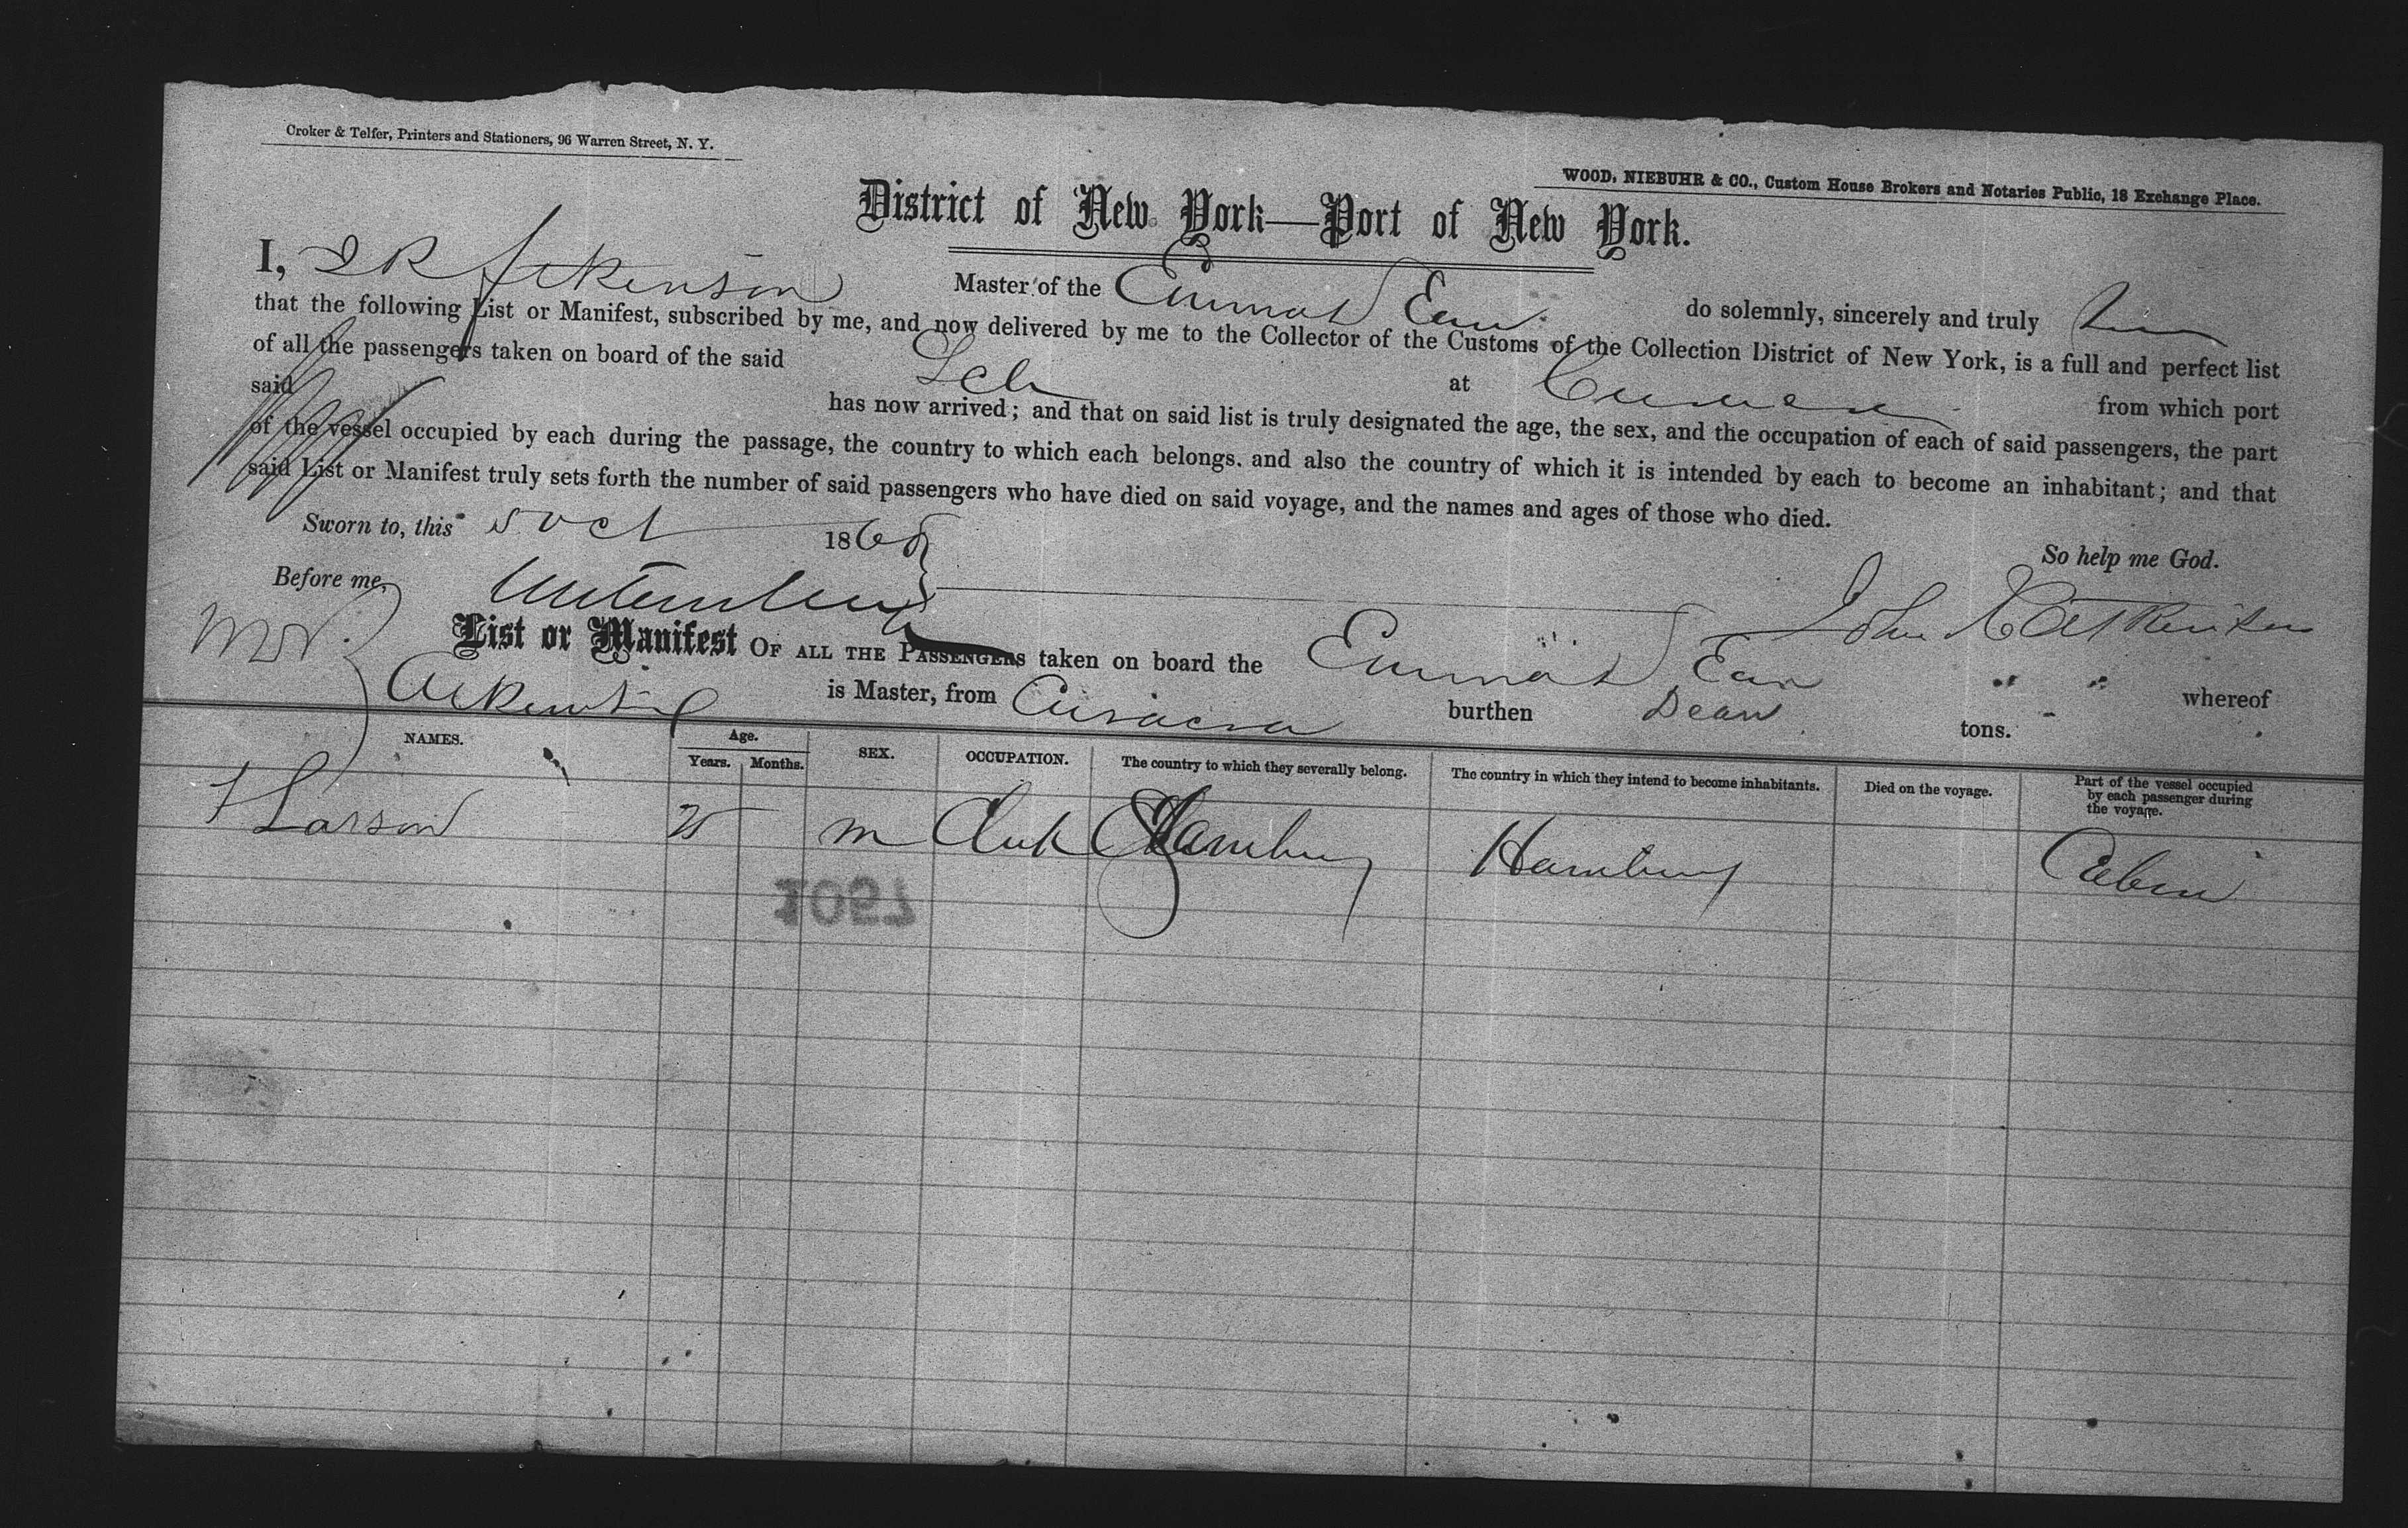 Croker & Telfer, Printers and Stationers, 96 Warren Street, N. Y.
WOOD, NIEBUHR & CO., Custom House Brokers and Notaries Public, 18 Exchange Place.
District of New York—Port of New York.
I, Master of the Emma D do solemnly, sincerely and truly
that the following List or Manifest, subscribed by me, and now delivered by me to the Collector of the Customs of the Collection District of New York, is a full and perfect list
of all the passengers taken on board of the said Sch at from which port
said has now arrived; and that on said list is truly designated the age, the sex, and the occupation of each of said passengers, the part
of the vessel occupied by each during the passage, the country to which each belongs, and also the country of which it is intended by each to become an inhabitant; and that
said List or Manifest truly sets forth the number of said passengers who have died on said voyage, and the names and ages of those who died.
Sworn to, this 5 Oct 1868
So help me God.
Before me,
John Atkinson
List or Manifest OF ALL THE PASSENGERS taken on board the Emma D " " whereof
is Master, from Curacoa burthen Dean tons.
NAMES. Age. Years. Months. SEX. OCCUPATION. The country to which they severally belong. The country in which they intend to become inhabitants. Died on the voyage. Part of the vessel occupied by each passenger during the voyage.
Larson 25 m Clerk Hamburg Hamburg Cabin
1057